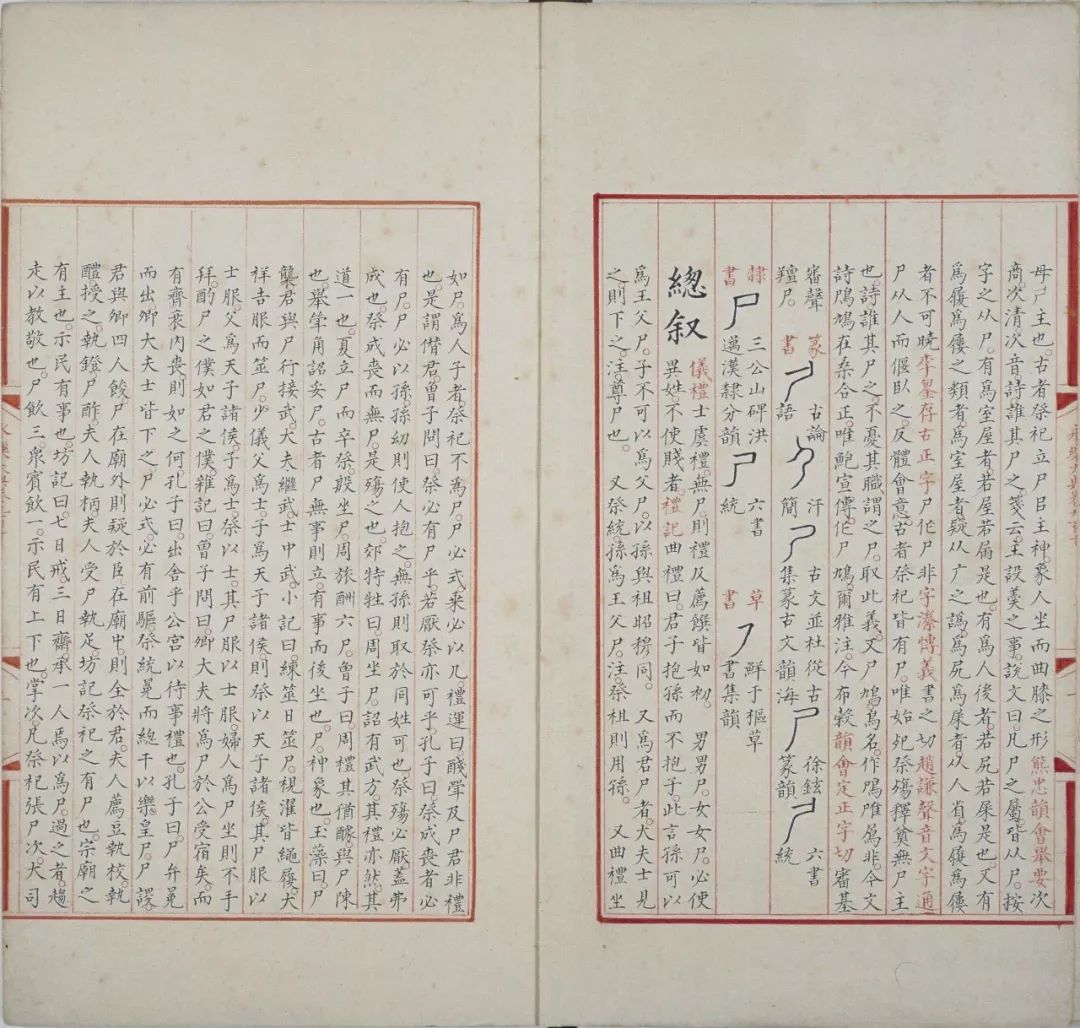 毋尸主也。古者祭祀立尸㠯主神。象人坐而曲膝之形熊忠韻會舉要次
商。次清次音。詩誰其尸之。箋云。主設羹之事。說文曰。凡尸之屬。皆从尸。按
字之从尸。有為室屋者。若屋若屚是也。有為人後者。若尻若𡱂是也。又有
為履為屨之類者。為室屋者疑从广之譌。為尻為𡱂者。从人省。為履為屨
者不可曉。李㽦存古正字尸佗尸非字潫愽義書之切趙謙聲音文字通
尸从人而偃臥之。反體會意。古者祭祀皆有尸。唯始兕祭殤釋奠無尸主
也。詩誰其尸之。不憂其職謂之尸。取此義。又尸鳩。鳥名。作鳲鳲為非。今文
詩鳲鳩在桑。合正。唯鮑宣傳佗尸鳩。爾雅注。今布穀韻會定正字切審基
審聲
羶尸。
篆書
尸
古論語
尸
汗簡
尸
古文並杜從古集篆古文韻海
尸
徐鉉篆韻
尸
六書統
隸書
尸
三公山碑洪邁漢隸分韻
尸
六書統
草書
尸
鮮于樞草書集韻
總叙
儀禮士虞禮。無尸。則禮及薦饌皆如初。 男男尸。女女尸。必使
異姓。不使賤者。禮記曲禮曰。君子抱孫而不抱子。此言孫可以
為王父尸。子不可以為父尸。以孫與祖昭穆同。 又為君尸者。大夫士見
之則下之。注。尊尸也。 又祭統孫為王父尸。注。祭祖則用孫。 又曲禮坐
如尸。為人子者。祭祀不為尸。尸必式。乘必以几。禮運曰醆斝及尸君非禮
也。是謂僭君。曾子問曰。祭必有尸乎。若厭祭亦可乎。孔子曰。祭成喪者必
有尸。尸必以孫。孫幼則使人抱之。無孫則取於同姓可也。祭殤必厭。蓋弗
成也。祭成喪而無尸。是殤之也。郊特牲曰。周坐尸。詔有武方。其禮亦然。其
道一也。夏立尸而卒祭。殷坐尸。周旅酬六尸。曾子曰。周禮其猶醵。與尸陳
也。舉斝角詔妥尸。古者尸無事則立。有事而後坐也。尸。神象也。玉藻曰。尸
襲君與尸行接武。大夫繼武。士中武。小記曰。練筮日筮尸。視濯皆繩屨。大
祥吉服而筮尸。少儀父為士。子為天子諸侯。則祭以天子諸侯。其尸服以
士服。父為天子諸侯。子為士。祭以士。其尸服以士服。婦人為尸坐則不手
拜。酌尸之僕如君之僕。雜記曰。曾子問曰。卿大夫將為尸於公受宿矣。而
有齊衰內喪。則如之何。孔子曰。出舍乎公宮以待事禮也。孔子曰。尸弁冕
而出。卿大夫士皆下之。尸必式。必有前驅。祭統冕而總干以樂皇尸。尸謖
君與卿四人餕。尸在廟外則疑於臣。在廟中。則全於君。夫人薦豆執校。執
醴授之。執鐙。尸酢夫人執柄。夫人受尸執足。坊記祭祀之有尸也。宗廟之
有主也。示民有事也。坊記曰。七日戒。三日齋。承一人焉以為尸。過之者。趨
走以教敬也。尸飲三。衆賓飲一。示民有上下也。掌次。凡祭祀張尸次。大司